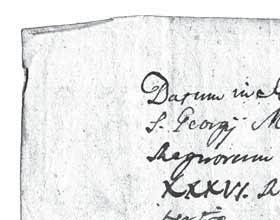 Datum in
S. Georgij
Regnorum
XXXVI.